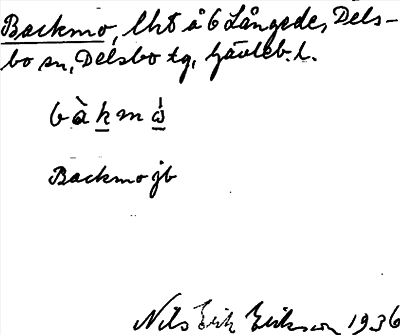 Backmo, lht å 6 Långede, Dels-
bo sn, Delsbo tg, Gävleb. l.
bàkmò
Backmo jb
Nils Erik Erikson 1936